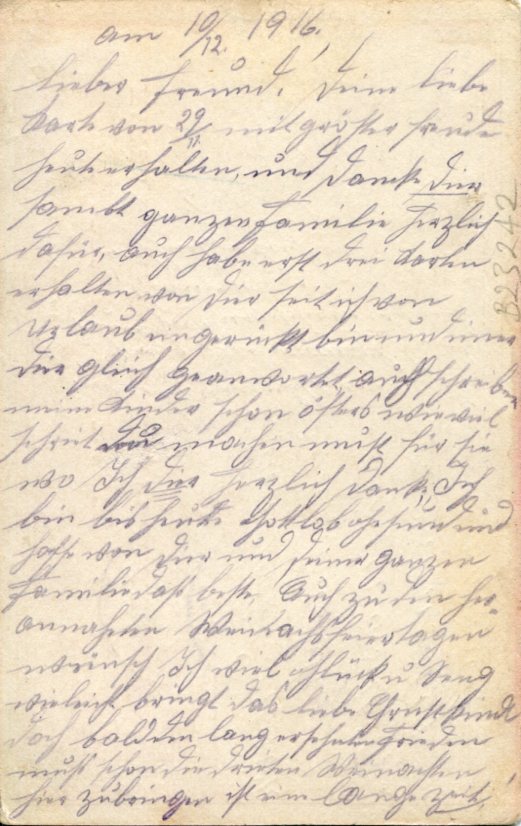 am 10/12. 1916.
Lieber Freund! Deine liebe
Karte von 29/11 mit größter freude
heute erhalten, und Danke Dier
sambt ganzen Familie herzlich
dafür, auch habe erst drei Karten
erhalten von Dier seit ich von
Urlaub eingerückt bin und imer
Dir gleich geanwortet, auch schreiben
meine Kinder schon öfters wie viel
du machen must für sie
wo Ich Dier herzlich Danke, Ich
bin bis heute Gottlob gesund und
hoffe von Dier und deiner ganzen
Familie daß beste. Auch zu den her-
annahenten Weinachtsfeiertagen
wünsch Ich viel Glück u Seng
vieleicht bringt das liebe Christkind
doch bald den lang ersehnten Frieden
muß schon die driten Weinachten
hier zubringen ist eine lange zeit,
B23242